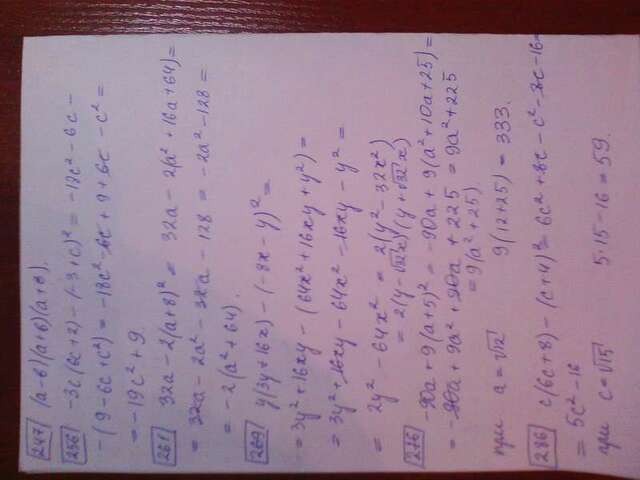 247 (a-6)(a+6)(a+8).
256 -3c(6c+2) - (-3+c)² = -18c² - 6c -
-(9-6c+c²) = -18c² - 6c + 9 + 6c - c² =
= -19c² + 9.
261 32a - 2(a+8)² = 32a - 2(a²+16a+64) =
= 32a - 2a² - 32a - 128 = -2a² - 128 =
= -2(a²+64).
269 y(3y+16x) - (-8x-y)² =
= 3y² + 16xy - (64x² + 16xy + y²) =
= 3y² + 16xy - 64x² - 16xy - y² =
= 2y² - 64x² = 2(y² - 32x²)
= 2(y-√32 x)(y+√32 x)
276 -90a + 9(a+5)² = -90a + 9(a²+10a+25) =
= -90a + 9a² + 90a + 225 = 9a² + 225
= 9(a²+25).
при a = √12 9(12+25) = 333.
286 c(6c+8) - (c+4)² = 6c² + 8c - c² - 8c - 16 =
= 5c² - 16
при c = √15 5·15 - 16 = 59.